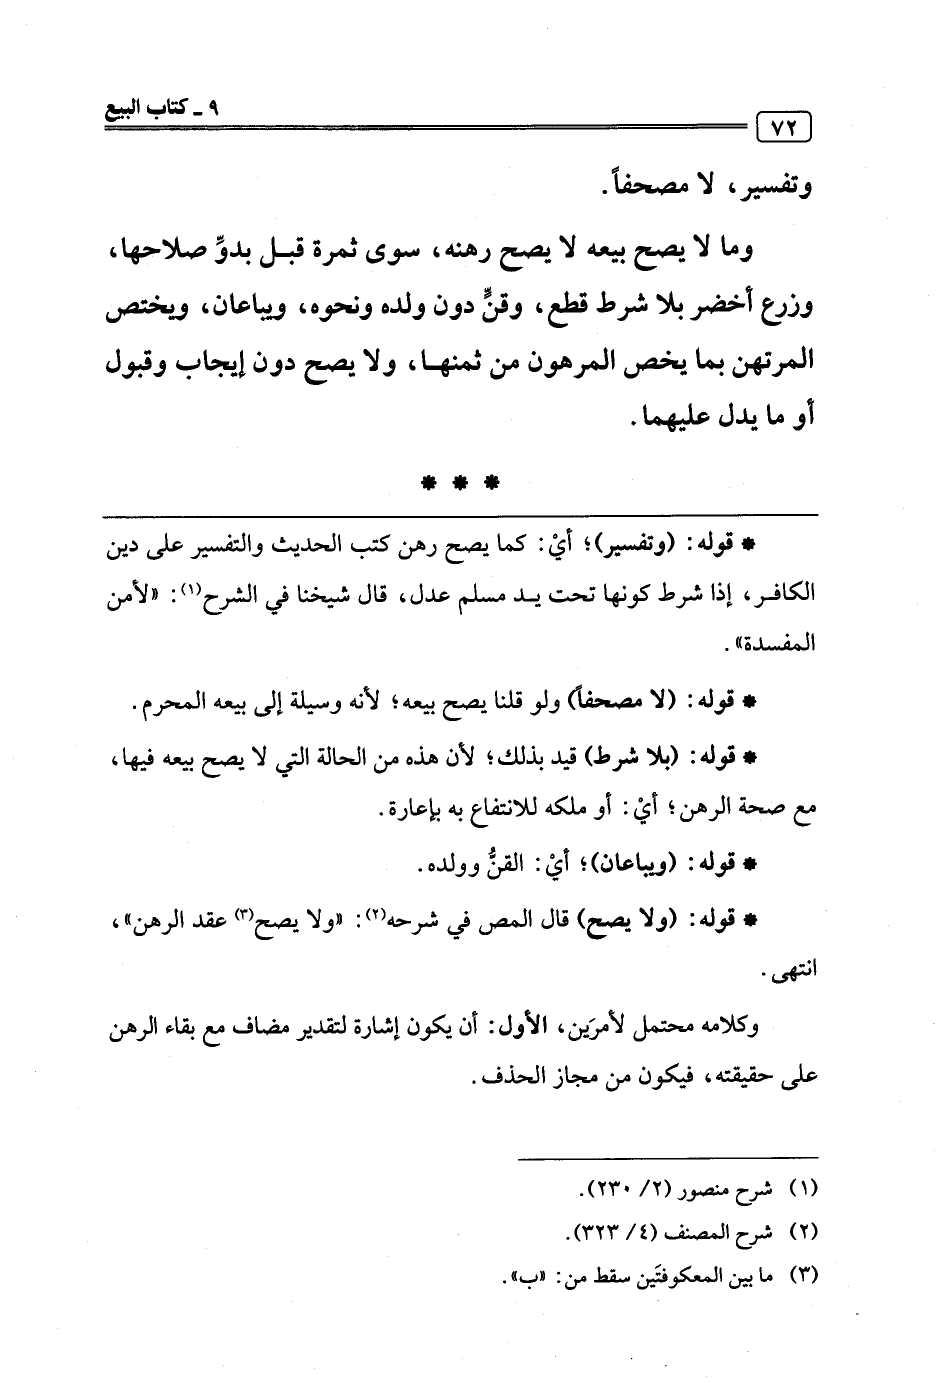 ٩ ـ كتاب البيع
٧٢
وتفسير، لا مصحفاً.
وما لا يصح بيعه لا يصح رهنه، سوى ثمرة قبل بدوِّ صلاحها،
وزرع أخضر بلا شرط قطع، وقنٍّ دون ولده ونحوه، ويباعان، ويختص
المرتهن بما يخص المرهون من ثمنهما، ولا يصح دون إيجاب وقبول
أو ما يدل عليهما.
* * *
* قوله: (وتفسير)؛ أيْ: كما يصح رهن كتب الحديث والتفسير على دين
الكافر، إذا شرط كونها تحت يد مسلم عدل، قال شيخنا في الشرح(١): «لأمن
المفسدة».
* قوله: (لا مصحفاً) ولو قلنا يصح بيعه؛ لأنه وسيلة إلى بيعه المحرم.
* قوله: (بلا شرط) قيد بذلك؛ لأن هذه من الحالة التي لا يصح بيعه فيها،
مع صحة الرهن؛ أيْ: أو ملكه للانتفاع به بإعارة.
* قوله: (ويباعان)؛ أيْ: القنُّ وولده.
* قوله: (ولا يصح) قال المص في شرحه(٢): «ولا يصح(٣) عقد الرهن»،
انتهى.
وكلامه محتمل لأمرَين، الأول: أن يكون إشارة لتقدير مضاف مع بقاء الرهن
على حقيقته، فيكون من مجاز الحذف.
(١) شرح منصور (٢/ ٢٣٠).
(٢) شرح المصنف (٤/ ٣٢٣).
(٣) ما بين المعكوفتَين سقط من: «ب».